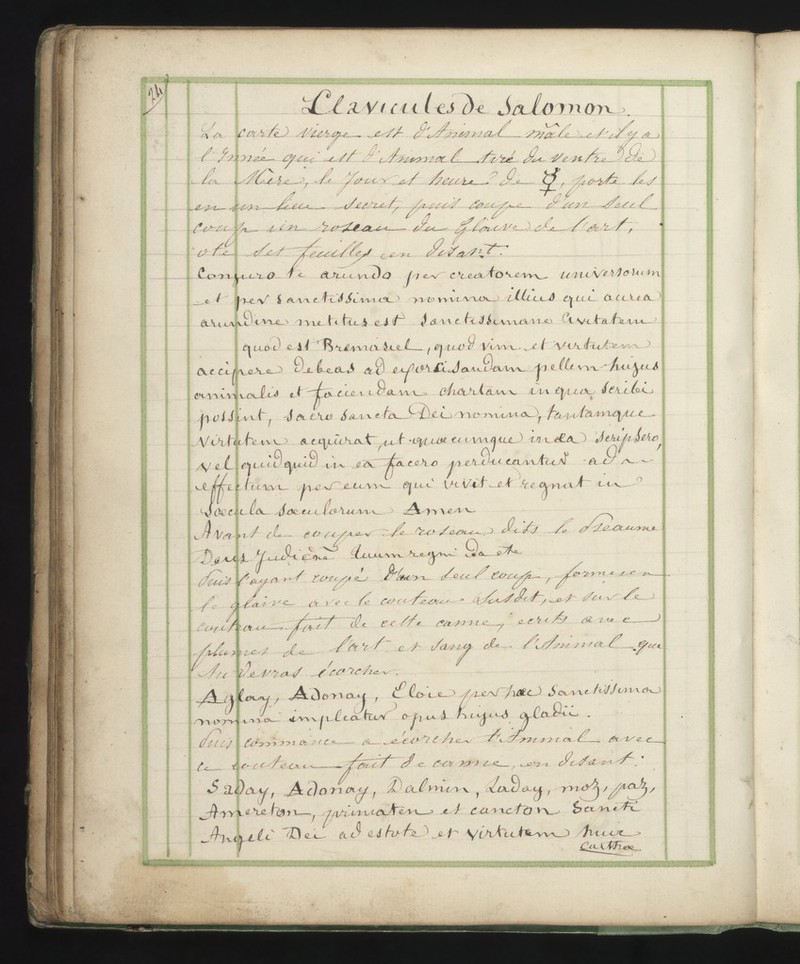 24
Clavicules De Salomon.
La carte vierge est d'Animal mâle et il y a
l'Innée qui est d'Animal tiré du ventre de
la Mère, le Jour et heure de ☿, porte les
en un lieu secret, puis coupe d'un seul
coup un roseau du Glaive de l'art,
ote ses feuilles en disant:
Conjuro te arundo per creatorem universorum
et per Sanctissima nomina illius qui aurea
arundine metitus est Sanctissimam Civitatem
quod est Bremasiel, quod vim et virtutem
accipere debeas ad exorsisandam pellem hujus
animalis et faciendam chartam in qua scribi
possint, sacro sancta Dei nomina, tantamque
Virtutem acquirat, ut quæcumque in ea scripsero,
vel quidquid in ea facero perducantur ad
effectum per eum qui vivit et regnat in
Sæcula sæculorum Amen
Avant de couper le roseau dits le Pseaume
Deus Judicium tuum regni da etc
Puis l'ayant coupé d'un seul coup, formes en
le glaive avec le couteau susdit, et sur le
couteau fait de cette canne, ecrits avec
plumes de l'art et sang de l'Animal que
tu devras écorcher.
Aglay, Adonay, Eloie per hæc Sanctissima
nomina impleatur opus hujus gladii.
Puis commance a écorcher l'Animal avec
ce couteau fait de canne, en disant:
Saday, Adonay, Dalmin, Laday, moz, paz,
Amereton, primaten et cancton Sancti
Angeli Dei ad estote et virtutem huic
Carthæ